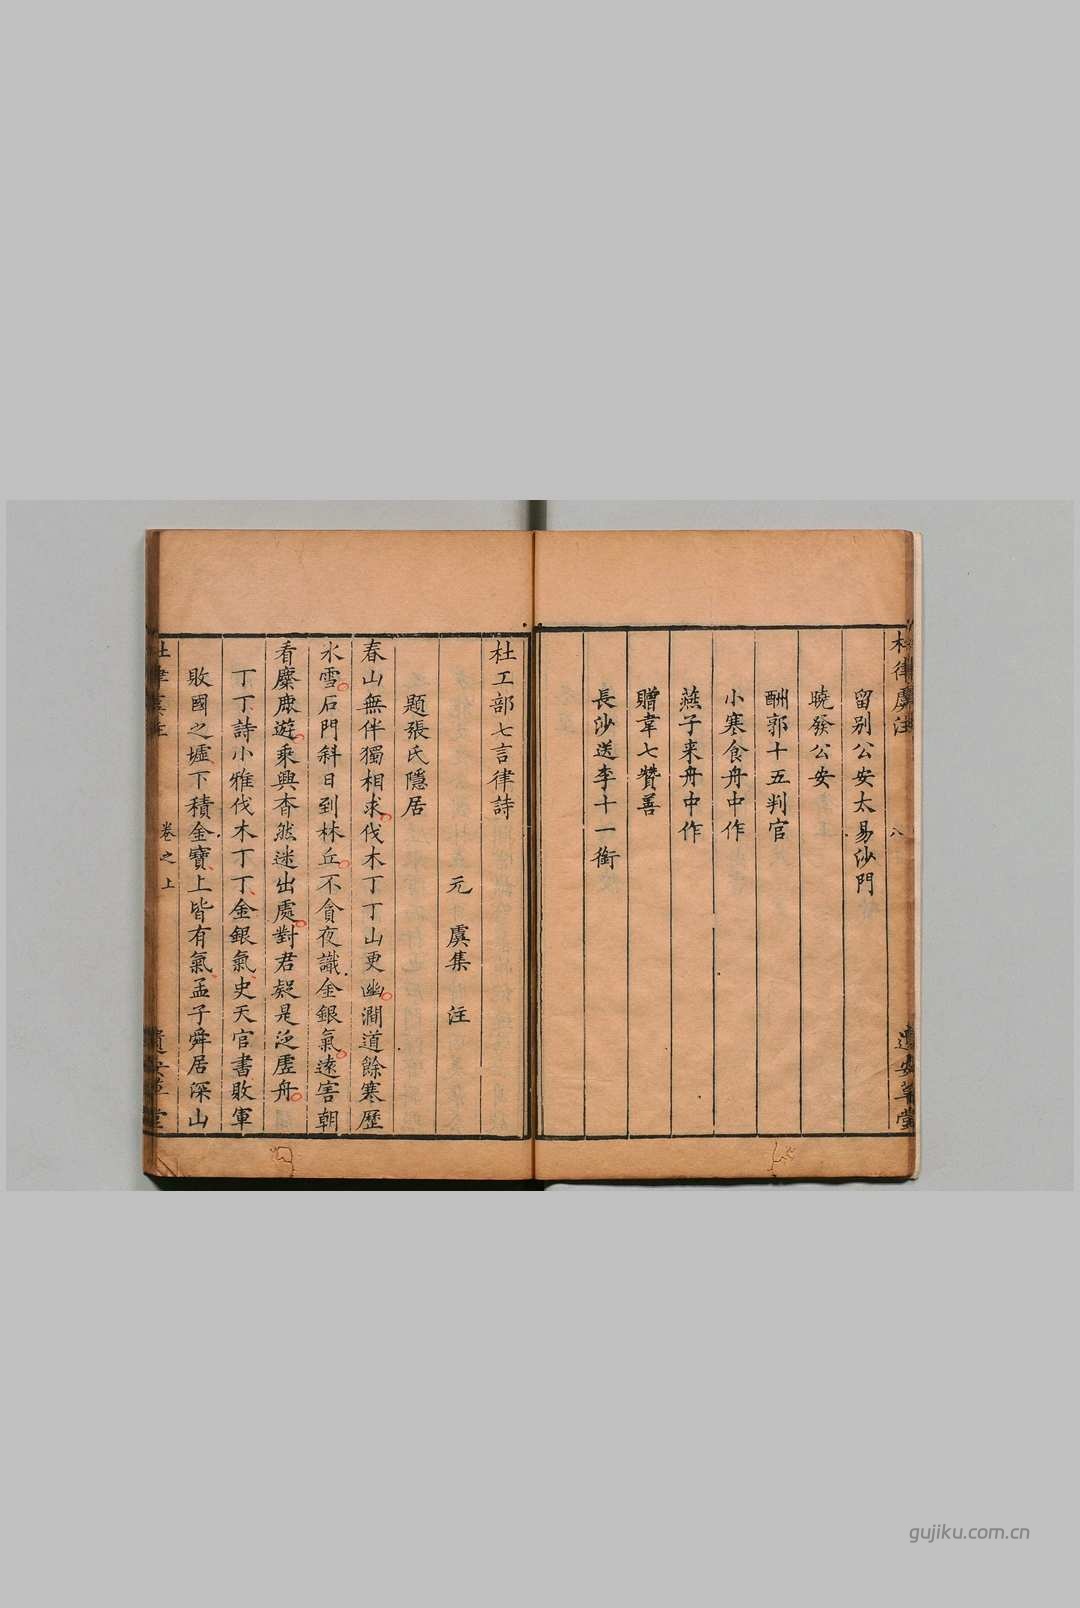 杜律虞注
八
遺安草堂
留别公安太易沙門
曉發公安
酬郭十五判官
小寒食舟中作
燕子来舟中作
贈韋七贊善
長沙送李十一銜
杜工部七言律詩
元 虞集 注
題張氏隱居
春山無伴獨相求伐木丁丁山更幽澗道餘寒歷
氷雪石門斜日到林丘不貪夜識金銀氣逺害朝
看麋鹿遊乘興杳然迷出處對君疑是泛虚舟
丁丁詩小雅伐木丁丁金銀氣史天官書敗軍
敗國之墟下積金寶上皆有氣孟子舜居深山
杜律虞注
卷之上
遺安草堂
gujiku.com.cn